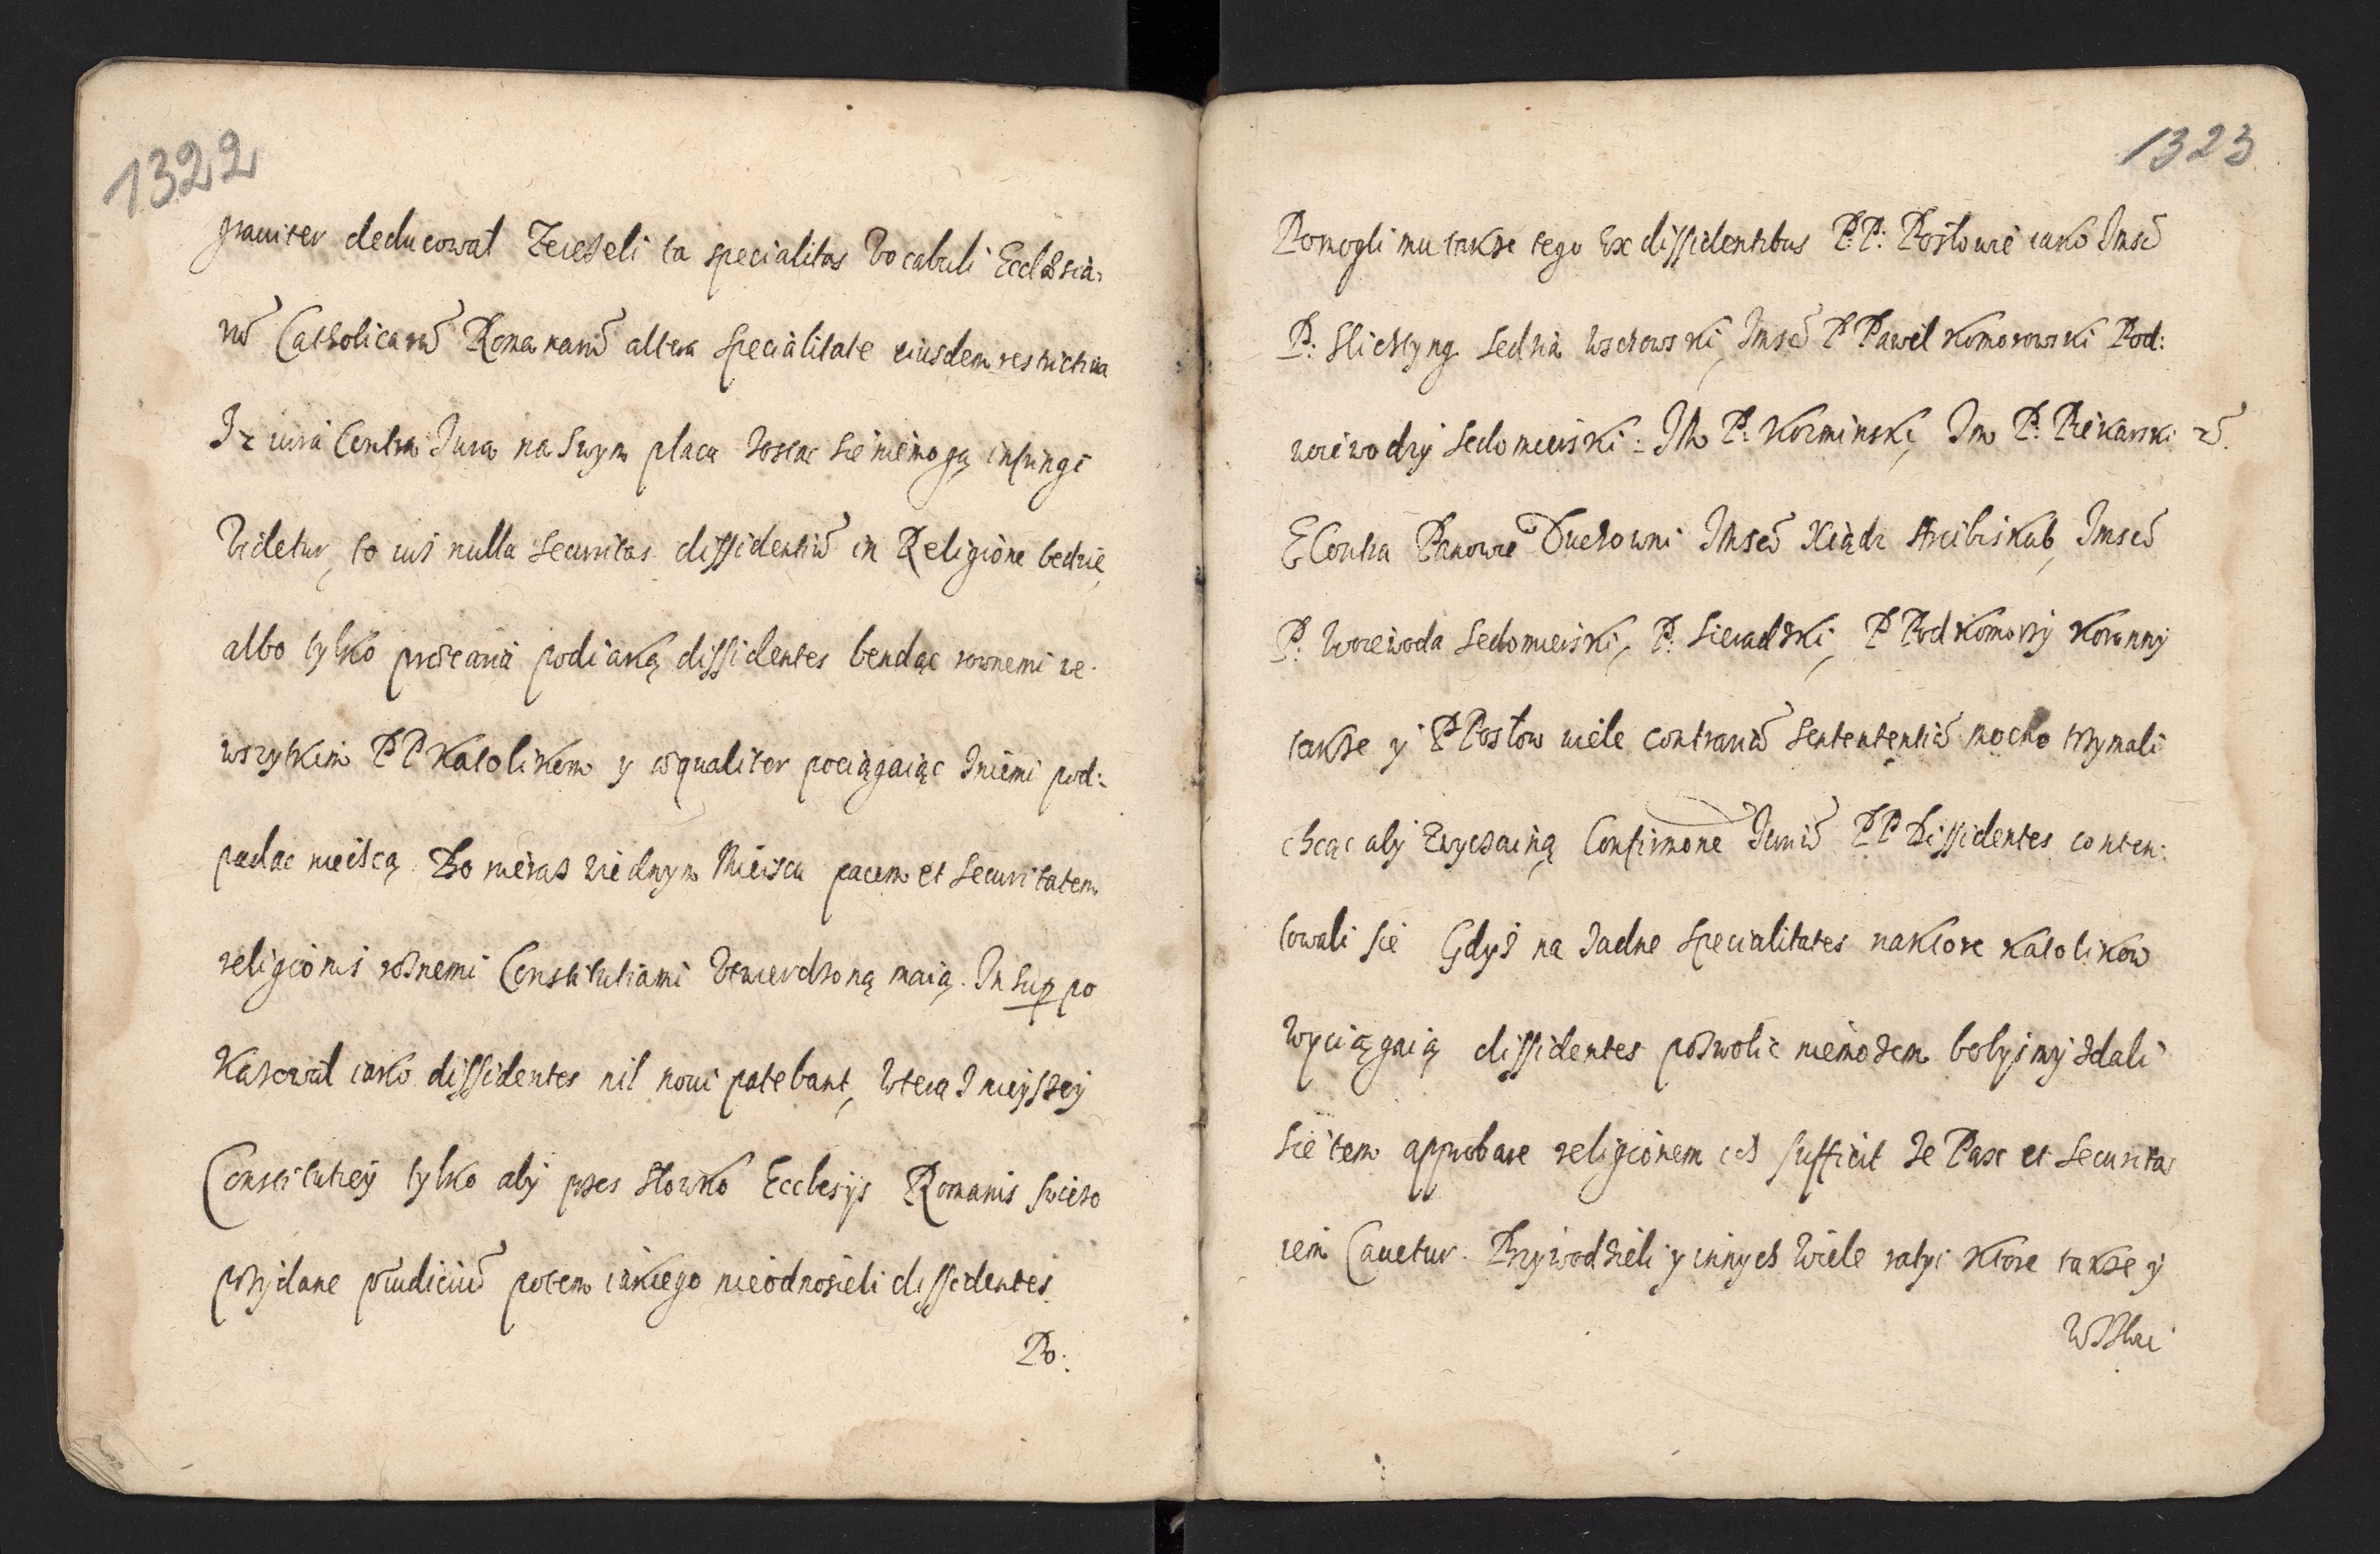 1322
grauiter deducował Zeieżeli ta specialitas Vocabuli Ecclesia-
rũ Catholicarũ Romanarũ altera specialitate eiusdem restrictiua
Iz iura Contra Jura na swym placu zostac sie niemogą infringi
Videtur, to iusz nulla securitas dissidentiũ in Religione bedzie,
albo tylko precaria podiaką dissidentes bendąc rownemi ze
wszytkim PP Katolikom y æqualiter pociągaiąc zniemi pod:
padac nieiscą. Bo nieras wiednym Mieiscu pacem et securitatem
religionis rożnemi Constitutiami Vtwierdzoną maią. In sup po
Kazował iako dissidentes nil noui petebant, wteiaznieyszey
Constitutiey tylko aby przes słowko Ecclesijs Romanis swiezo
przydane præiudiciũ potem iakiego nieodnosieli dissidentes
Po:
1323
Pomogli mu także tego Ex dissidentibus P.P: Posłowie iako Jmsc
P: Slichtyng sedzia wschowski, Jmsc P Paweł Komorowski Pod:
woiewodzy sedomierski: JM P: Kozminski, Jm P: Piekarski &c.
E Contra Panowie Duchowni JMsc Xiądz Arcibiskub, Jmsc
P: Woiewoda sedomierski, P: Sieradzki, P Podkomorzy Koronny
także y P Posłow wiele contrariũ sententententiũ mocno trzymali
chcąc aby zwyczainą Confirmone Juriũ PP Dissidentes conten:
towali sie Gdyż na żadne specialitates naktore Katolikow
Wyciągaią dissidentes pozwolic niemożem bobysmy zdali
sie tem approbare religionem ich sufficit że Pax et securitas
iem Cauetur. Przywodzieli y innych Wiele ratyi ktore także y